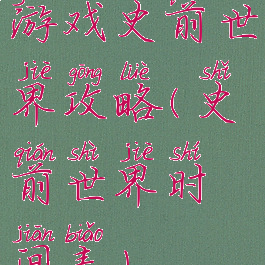 游戏史前世
jiè gōng lüè shǐ
界攻略(史
qián shì jiè shí
前世界时
jiān biǎo
间表)